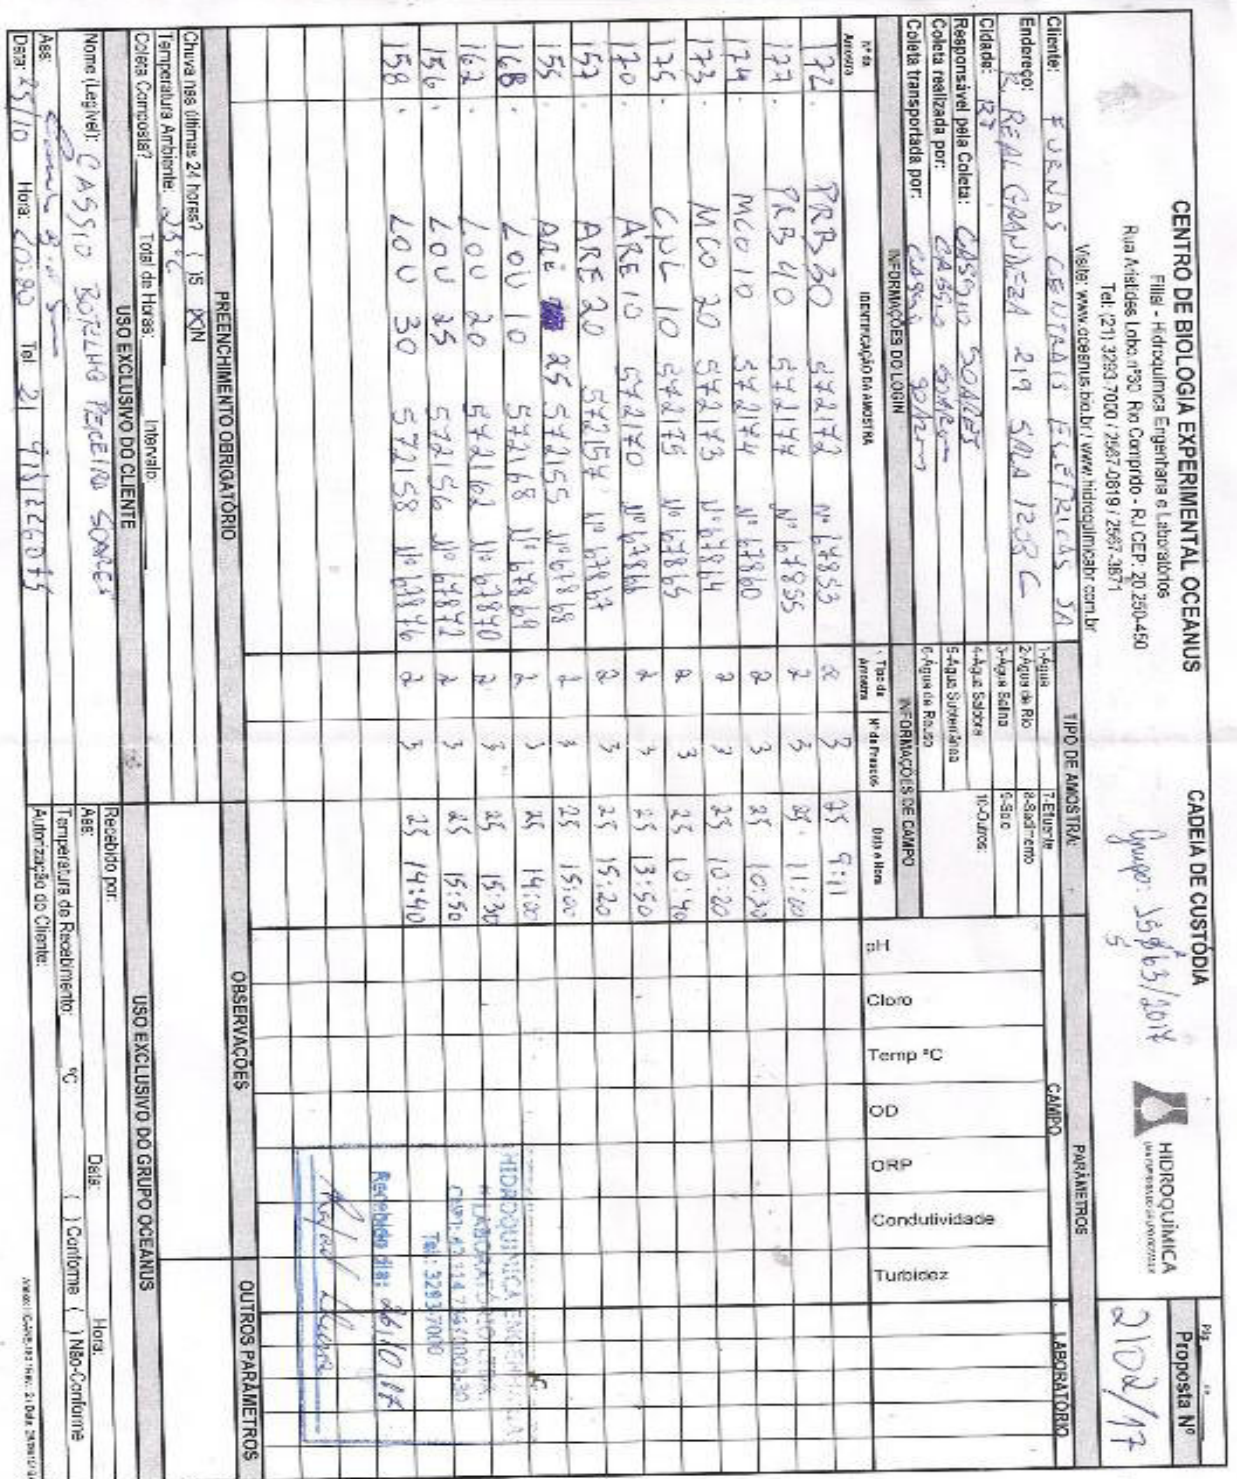 CENTRO DE BIOLOGIA EXPERIMENTAL OCEANUS
Filial - Hidroquímica Engenharia e Laboratórios
Rua Aristides Lobo nº30 Rio Comprido - RJ CEP. 20.250-450
Tel: (21) 3293-7000 / 2567-0819 / 2567-3871
Visite: www.oceanus.bio.br / www.hidroquimicabr.com.br
CADEIA DE CUSTÓDIA
Grupo:
HIDROQUÍMICA
Pág.
Proposta Nº
2102/17
Cliente: FURNAS CENTRAIS ELÉTRICAS SA
Endereço: R. REAL GRANDEZA 219 SALA 1208 C
Cidade: RJ
Responsável pela Coleta: CASSIO SOARES
Coleta realizada por: CASSIO SOARES
Coleta transportada por: CASSIO SOARES
TIPO DE AMOSTRA:
1-Água
2-Água de Rio
3-Água Salina
4-Água Salobra
5-Água Subterrânea
6-Água de Reuso
7-Efluente
8-Sedimento
9-Solo
10-Outros:
PARÂMETROS
CAMPO
LABORATÓRIO
INFORMAÇÕES DO LOGIN
INFORMAÇÕES DE CAMPO
Nº da Amostra
IDENTIFICAÇÃO DA AMOSTRA
Tipo de Amostra
Nº de Frascos
Data e Hora
pH
Cloro
Temp ºC
OD
ORP
Condutividade
Turbidez
172. PRB 30 572172 Nº 67853 2 3 25 9:11
177. PRB 40 572177 Nº 67855 2 3 25 11:00
174. MCO 10 572174 Nº 67860 2 3 25 10:30
173. MCO 20 572173 Nº 67864 2 3 25 10:20
175. CNL 10 572175 Nº 67865 2 3 25 10:40
170. ARE 10 572170 Nº 67866 2 3 25 13:50
157. ARE 20 572157 Nº 67867 2 3 25 15:20
155. ARE 25 572155 Nº 67868 2 3 25 15:00
168. LOU 10 572168 Nº 67869 2 3 25 14:00
162. LOU 20 572162 Nº 67870 2 3 25 15:30
156. LOU 25 572156 Nº 67872 2 3 25 15:50
158. LOU 30 572158 Nº 67876 2 3 25 14:40
HIDROQUIMICA ENGENHARIA
LABORATÓRIO LTDA
Tel: 3293-7000
Recebido dia: 26/10/17
PREENCHIMENTO OBRIGATÓRIO
OBSERVAÇÕES
OUTROS PARÂMETROS
Chuva nas últimas 24 horas? ( )S (X)N
Temperatura Ambiente: 25ºC
Coleta Composta? Total de Horas: Intervalo:
USO EXCLUSIVO DO CLIENTE
USO EXCLUSIVO DO GRUPO OCEANUS
Nome (Legível): CASSIO BOTELHO PECEIRO SOARES
Ass:
Data: 25/10 Hora: Tel: 21
Recebido por: Data: Hora:
Ass:
Temperatura de Recebimento: ºC ( ) Conforme ( ) Não-Conforme
Autorização do Cliente: